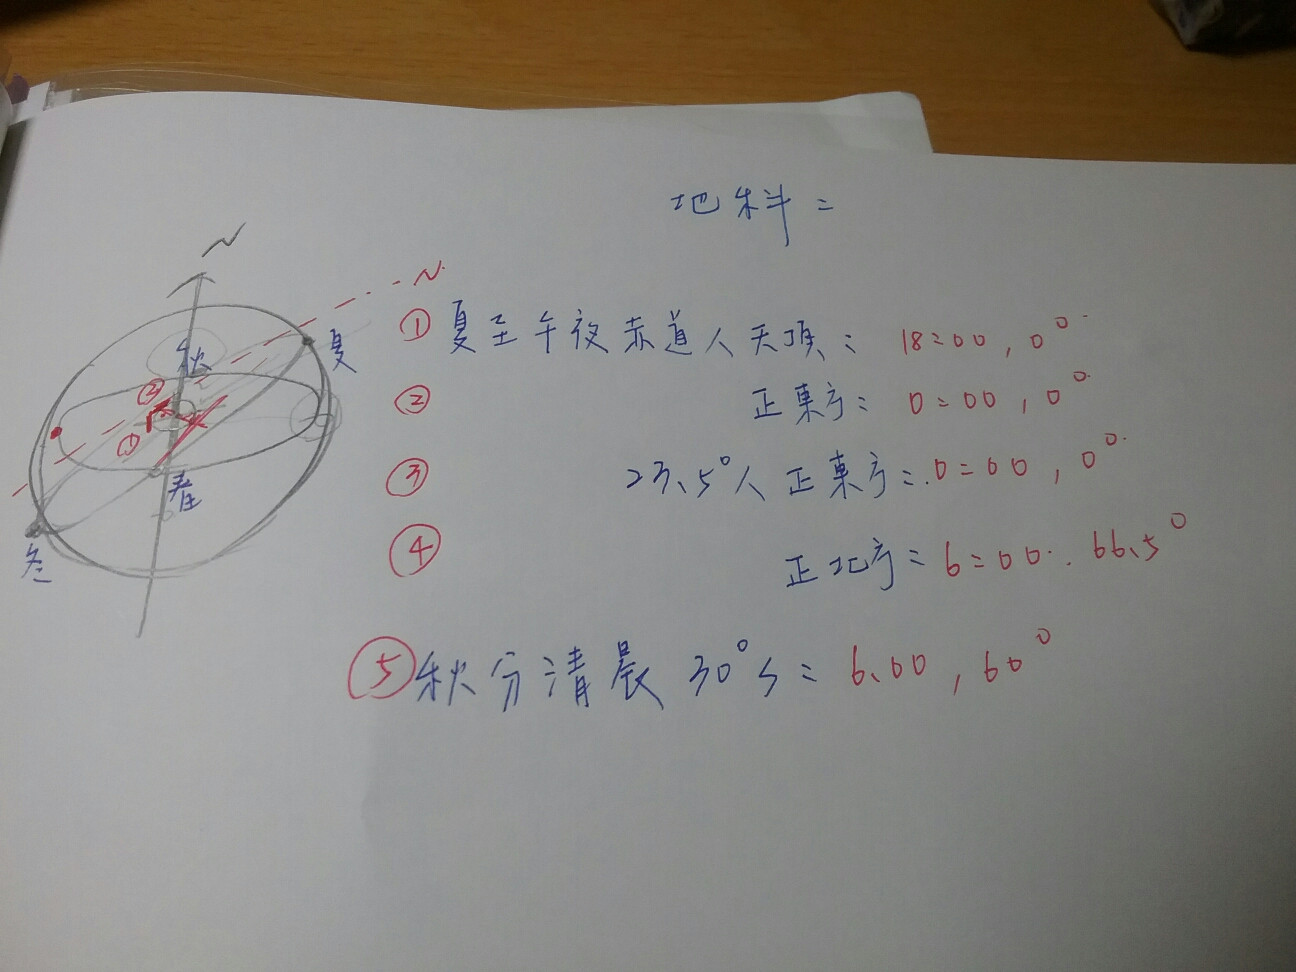 地科=
N
N
① 夏至午夜赤道人天頂: 18=00, 0°
② 正東方: 0=00, 0°
③ 23.5°人正東方: 0=00, 0°
④ 正北方: 6=00. 66.5°
⑤ 秋分清晨30°S= 6.00, 60°
秋
夏
②
①
春
冬